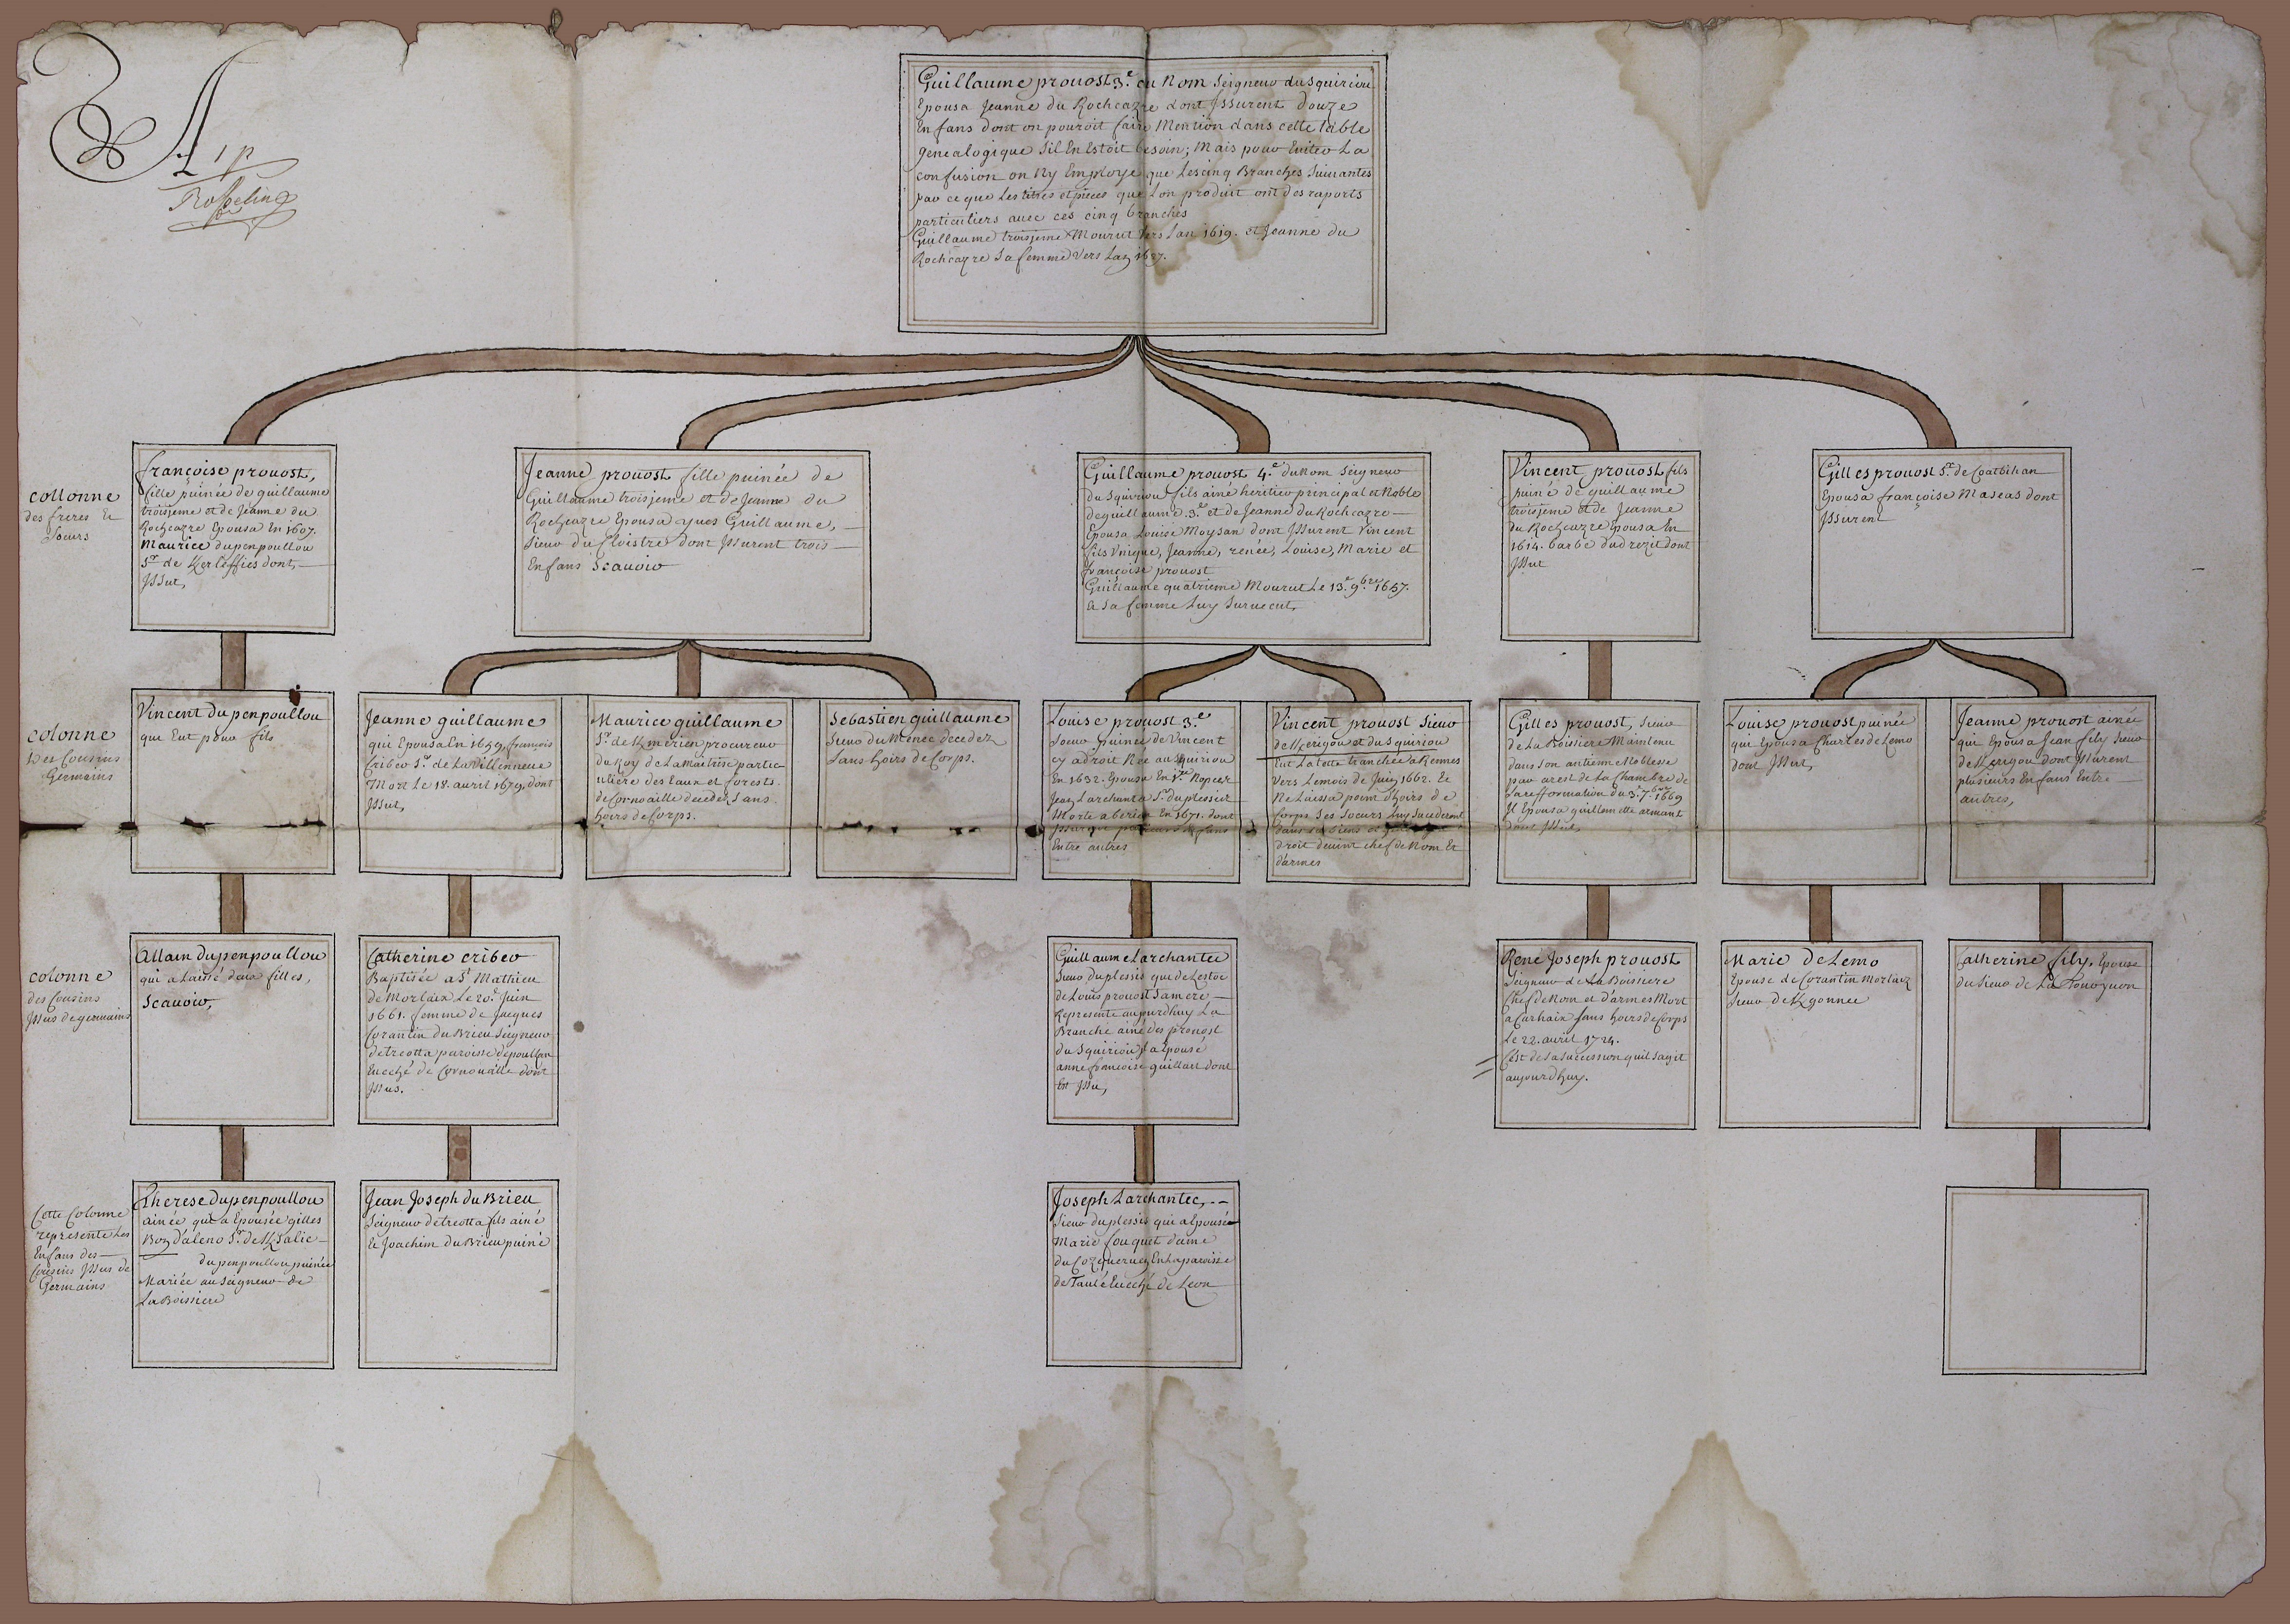 A
1 p
Guillaume prouost 3.e du Nom Seigneur du Squiriou
Epousa Jeanne du Rochcazre dont Jssurent douze
Enfans dont on pouroit faire Mention dans cette table
genealogique sil En Estoit besoin; Mais pour Eviter La
confusion on Ny Employe que Les cinq Branches Suiuantes
par ce que Les titres et pieces que Lon produit ont des raports
particuliers auec ces cinq branches
Guillaume troisjeme Mourut Vers Lan 1619. et Jeanne du
Rochcazre Sa femme Vers Lan
collonne
des freres Et
Soeurs
françoise prouost,
fille puinée de guillaume
troisjeme et de Jeanne du
Rochcazre Epousa En 1607.
Maurice dupenpoullou
Sr. de Kerleffies dont,
Jssut,
Jeanne prouost fille puinée de
Guillaume troisjeme et de Jeanne du
Rochcazre Epousa yues Guillaume,
Sieur du Cloistre dont Jssurent trois
Enfans Scauoir
Guillaume prouost 4.e du Nom Seigneur
du Squiriou fils ainé heritier principal et Noble
de guillaume .3.e et de Jeanne du Rochcazre
Epousa Louise Moysan dont Jssurent Vincent
fils Vnique, Jeanne, renée, Louise, Marie et
françoise prouost
Guillaume quatrieme Mourut Le 13.e 9.bre 1657.
Et Sa femme Luy Suruecut,
Vincent prouost fils
puiné de guillaume
troisjeme et de Jeanne
du Rochcazre Epousa En
1614. barbe dudrezit dont
Jssut
Gilles prouost Sr. de Coatbihan
Epousa françoise Maseas dont
Jssurent
colonne
Des Cousins
Germains
Vincent dupenpoullou
qui Eut pour fils
Jeanne guillaume
qui Epousa En 1659. françois
Cribeo Sr. de La Villenneue
Mort Le 18. auril 1679. dont
Jssut,
Maurice guillaume
Sr. de Kmerien procureur
du Roy de La Maitrise partic
uliere des Eaux et forests
de Cornoaille decedez Sans
hoirs de Corps.
Sebastien guillaume
Sieur du Menec decedez
Sans hoirs de Corps.
Louise prouost 3.e
Soeur puinée de Vincent
cy adroit Née au Squiriou
En 1632. Epousa En 1.re Nopces
Jean Larchantec Sr. duplessix
Morte a En 1671. dont
Entre autres
Vincent prouost Sieur
de Kerigou et du Squiriou
Eut La teste tranchée a Rennes
Vers Le mois de Juin 1662. Et
Ne Laissa point d'hoirs de
Corps Ses Soeurs Luy Succederent
dans Ses biens et
droit deuint chef de Nom Et
d'armes
Gilles prouost, Sieur
de La Boissiere Maintenu
dans Son antienne Noblesse
par arest de La Chambre de
La refformation du 3.e 7.bre 1669
Jl Epousa guillemette armant
dont Jssut,
Louise prouost puinée
qui Epousa Charles de Lemo
dont Jssut,
Jeanne prouost ainée
qui Epousa Jean fily Sieur
de Kerigou dont Jssurent
plusieurs Enfans Entre
autres,
colonne
des Cousins
Jssus de germains
Allain dupenpoullou
qui a Laissé deux filles,
Scauoir,
Catherine cribeo
Baptisée a St. Mathieu
de Morlaix Le 20.e Juin
1661. femme de Jacques
Corantin du Brieu Seigneur
de treotta paroisse de poullan
Euesché de Cornouaille dont
Jssus.
Guillaume Larchantec
Sieur duplessis qui de Lestoc
de Louis prouost Sa mere,
Represente aujourdhuy La
Branche ainé des prouost
du Squiriou Jl a Epousé
anne françoise guillart dont
Est Jssu,
René Joseph prouost
Seigneur de La Boissiere
Chef de Nom et d'armes Mort
a Carhaix Sans hoirs de Corps
Le 22. auril 1724.
C'est de Sa Succession quil Sagit
aujourdhuy.
Marie de Lemo
Epouse de Corantin Morlaix
Sieur de Kgonnec
Catherine fily, Epouse
du Sieur de
Cette Colonne
represente Les
Enfans des
Cousins Jssus de
Germains
Therese dupenpoullou
ainée qui a Epousée gilles
Boz d'aleno Sr. de KSalic
dupenpoullou puinée
Mariée au Seigneur de
La Boissiere
Jean Joseph du Brieu
Seigneur de treotta fils ainé
Et Joachim du Brieu puiné
Joseph Larchantec,
Sieur duplessis qui a Epousée
Marie fouquet dame
du En La paroisse
de Taulé Euesché de Leon